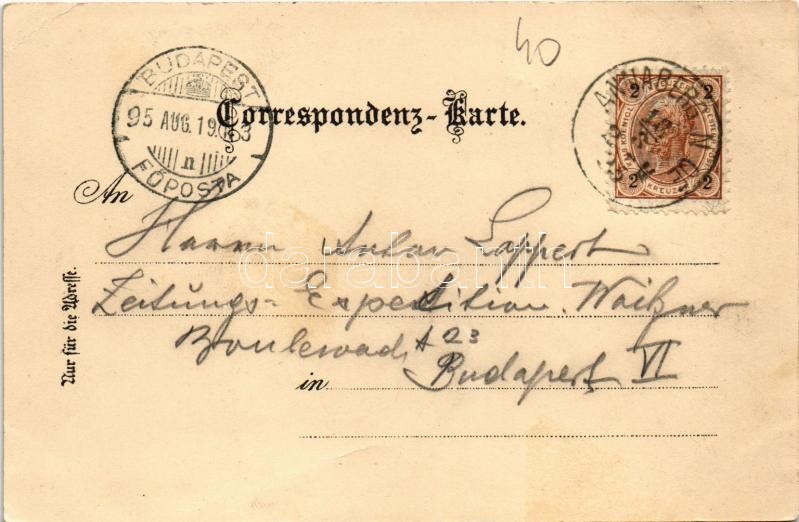 40
BUDAPEST
95 AUG. 19
n
FŐPOSTA
Correspondenz-Karte.
2 2
2 2
KREUZER
An
Herrn Anton Lappert
Zeitungs-Expedition. Waitzner
Boulevard 23
in Budapest VI
Nur für die Adresse.
darabanth